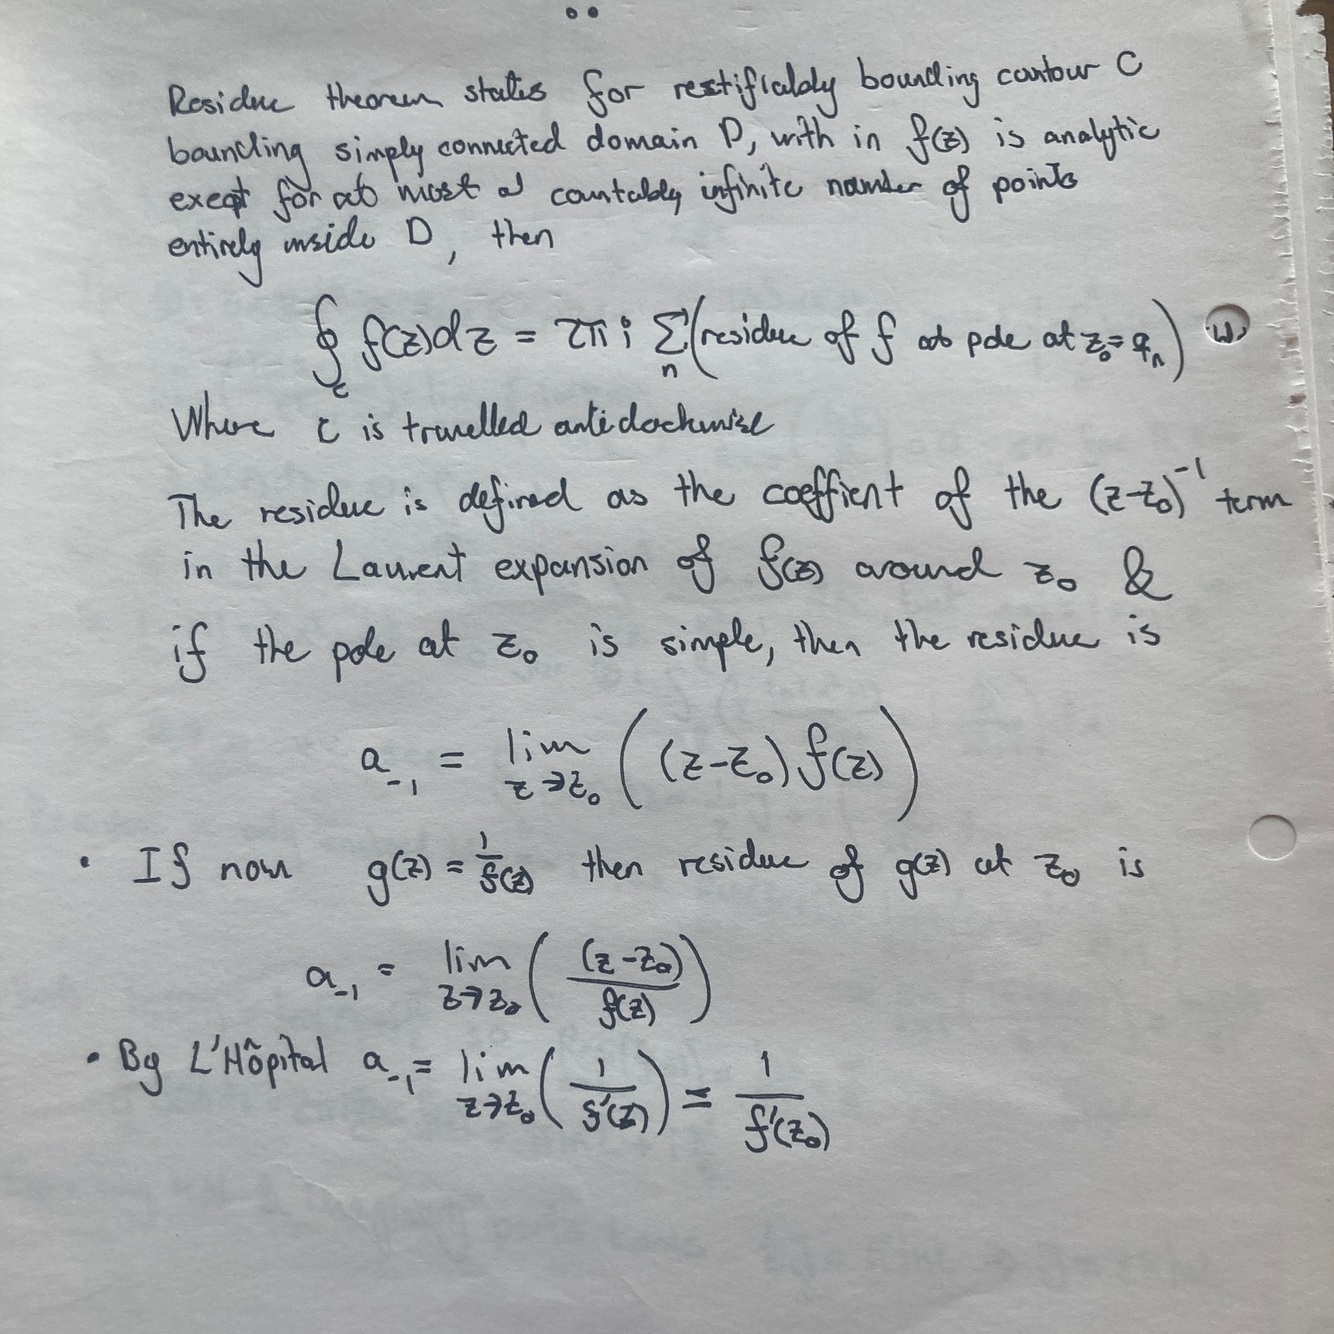 Residue theorem states for restifiably bounding contour C
bounding simply connected domain D, with in f(z) is analytic
exept for at most a countably infinite number of points
entirely inside D, then
∮_C f(z)dz = 2πi Σ_n (residue of f at pole at z₀ = q_n)
Where C is travelled anticlockwise
The residue is defined as the coeffient of the (z-z₀)⁻¹ term
in the Laurent expansion of f(z) around z₀ &
if the pole at z₀ is simple, then the residue is
a₋₁ = lim_{z→z₀} ((z-z₀) f(z))
• If now g(z) = 1/f(z) then residue of g(z) at z₀ is
a₋₁ = lim_{z→z₀} ((z-z₀)/f(z))
• By L'Hôpital a₋₁ = lim_{z→z₀} (1/f'(z)) = 1/f'(z₀)